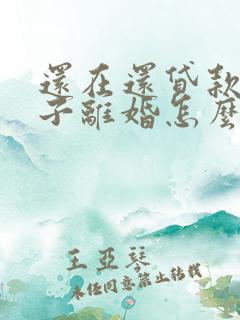 還在還貸款
子離婚怎麼
王亞琴
未經同意禁止轉載